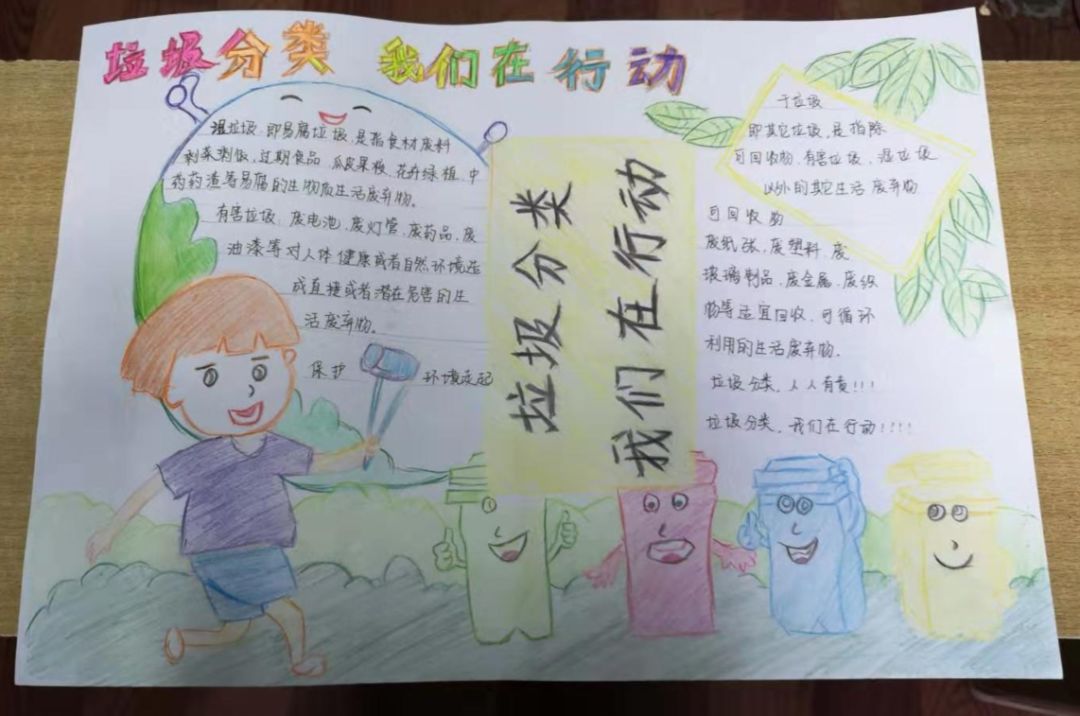 垃圾分类 我们在行动
湿垃圾，即易腐垃圾，是指食材废料
剩菜剩饭，过期食品，瓜皮果核，花卉绿植，中
药药渣等易腐的生物质生活废弃物。
有害垃圾，废电池，废灯管，废药品，废
油漆等对人体健康或者自然环境造
成直接或者潜在危害的生
活废弃物。
保护 环境
垃圾分类
我们在行动
干垃圾
即其它垃圾，是指除
可回收物，有害垃圾，湿垃圾
以外的其它生活废弃物
可回收物
废纸张，废塑料，废
玻璃制品，废金属，废织
物等适宜回收，可循环
利用的生活废弃物.
垃圾分类，人人有责!!!
垃圾分类，我们在行动!!!!